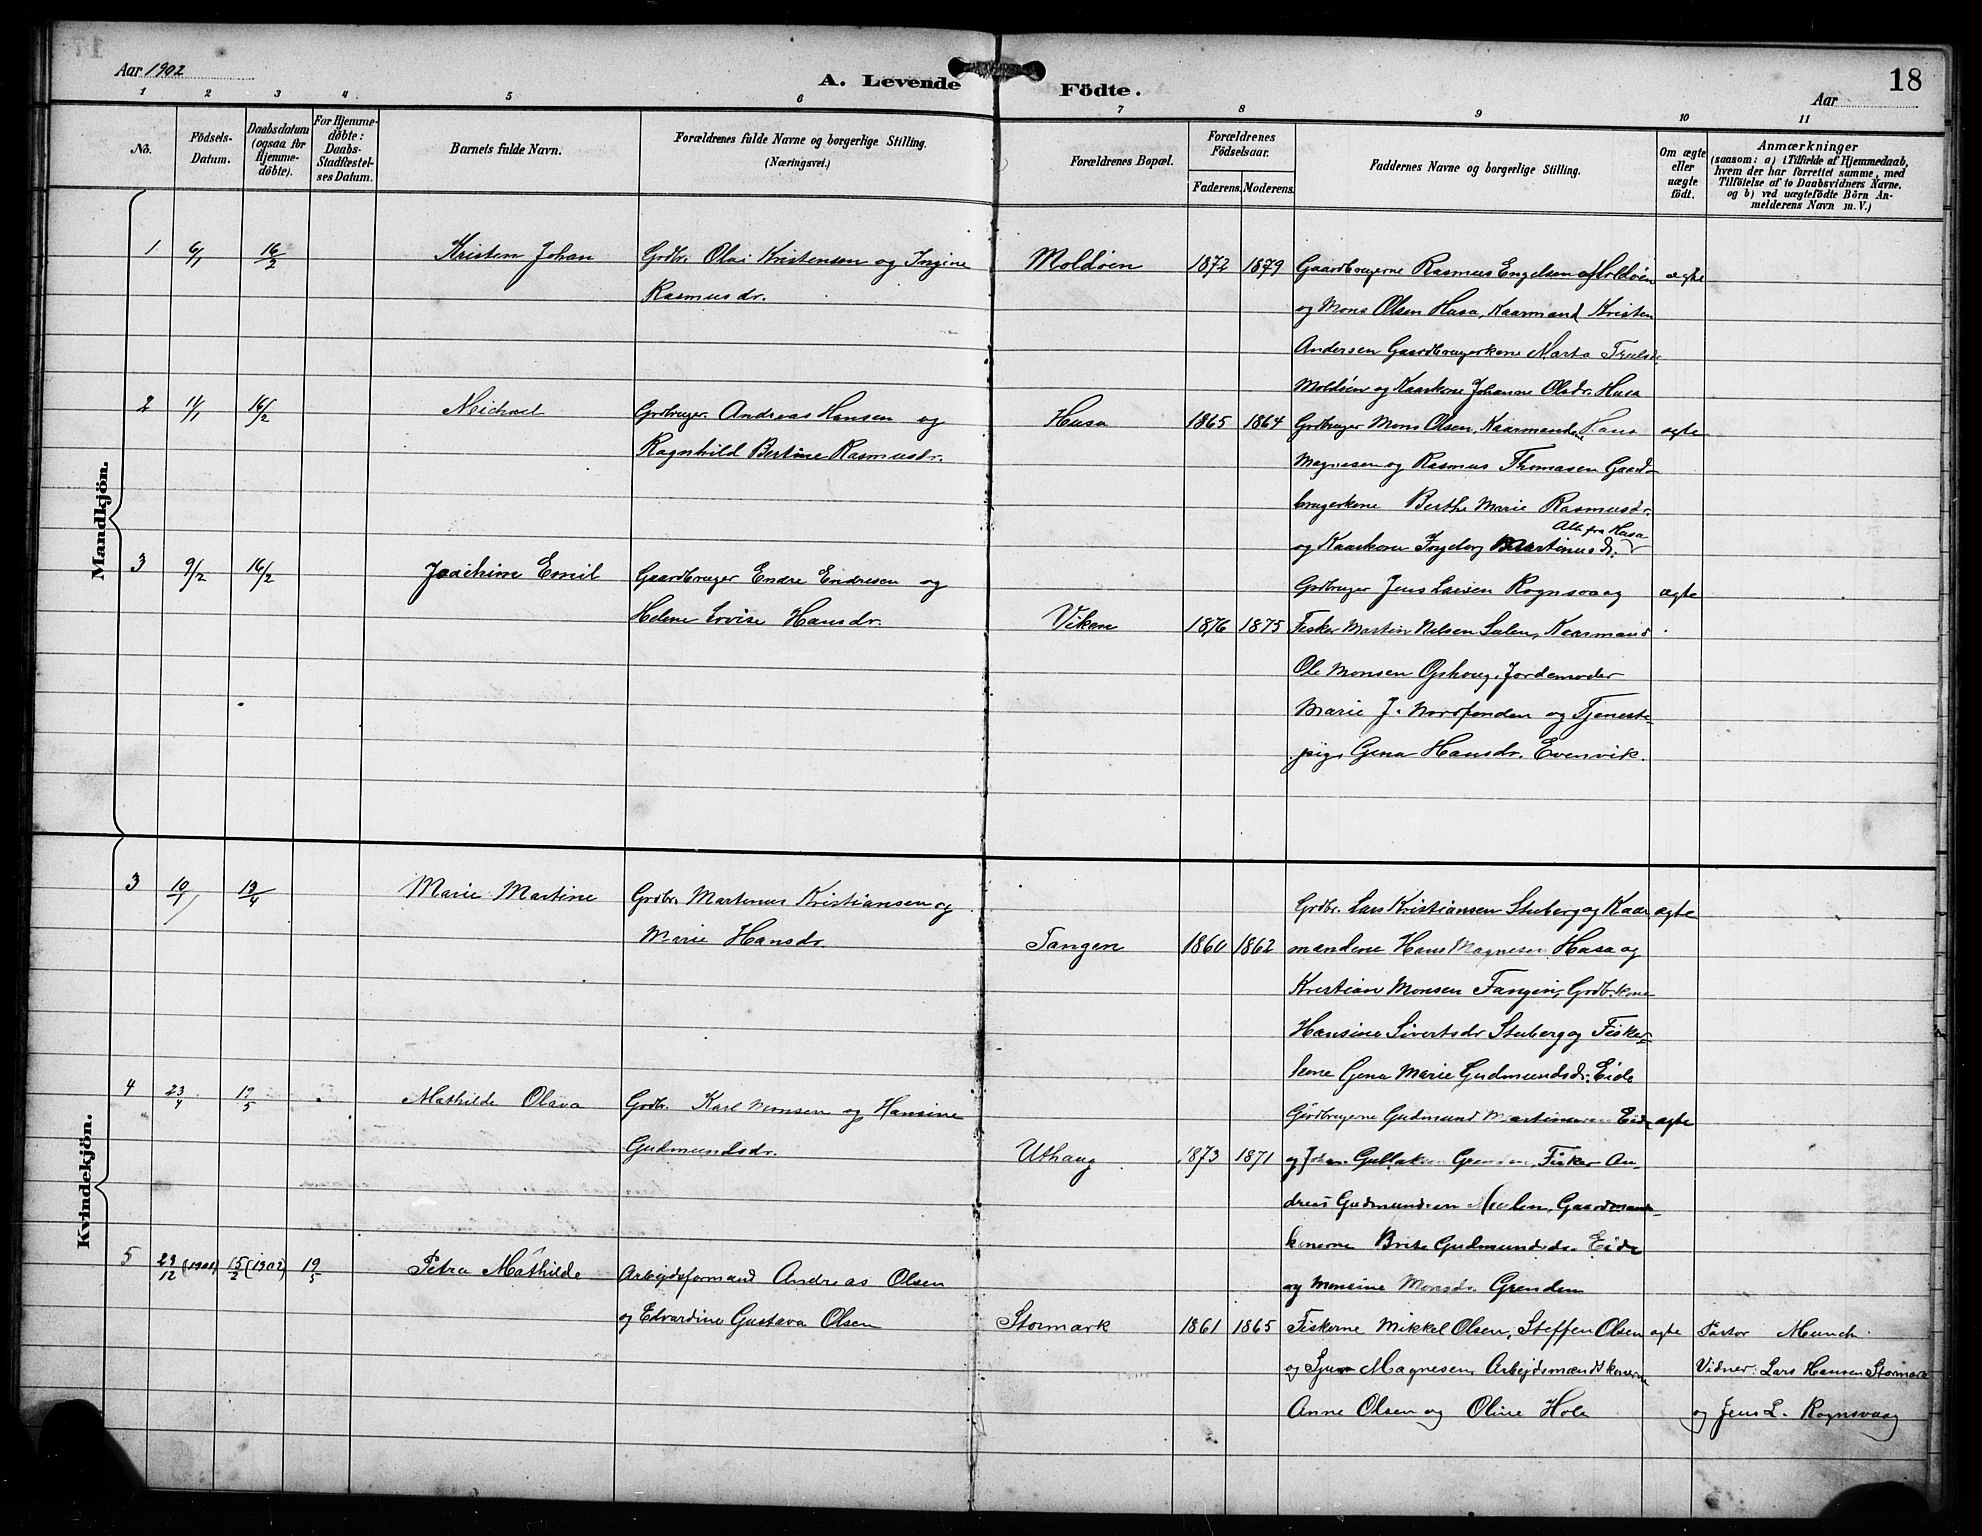 Aar 1902
A. Levende Födte.
18
Aar
1 2 3 4 5 6 7 8 9 10 11
No.
Födsels-Datum.
Daabsdatum (ogsaa for Hjemmedöbte).
For Hjemmedöbte: Daabs-Stadfæstelses Datum.
Barnets fulde Navn.
Forældrenes fulde Navne og borgerlige Stilling. (Næringsvei.)
Forældrenes Bopæl.
Forældrenes Födselsaar.
Faderens. Moderens.
Faddernes Navne og borgerlige Stilling.
Om ægte eller uægte födt.
Anmærkninger
(saasom: a) i Tilfælde af Hjemmedaab,
hvem der har forrettet samme, med
Tilföielse af to Daabsvidners Navne.
og b) ved uægtefödte Börn Anmelderens Navn m. V.)
Mandkjön.
1 6/1 16/2 Kristen Johan
Grdbr. Olai Kristensen og Ingine
Rasmusdr.
Moldöen 1872 1879
Gaardbrugerne Rasmus Engelsen Moldöen
og Mons Olsen Husa, Kaarmand Kristen
Andersen Gaardbrugerkone Marta
Moldöen og Kaarkone Johanne Olsdr. Husa
ægte
2 11/1 16/2 Michael
Grdbruger Andreas Hansen og
Ragnhild Bertine Rasmusdr.
Husa 1865 1864
Grdbruger Mons Olsen, Kaarmændene Hans
Magnesen og Rasmus Thomasen Gaard-
brugerkone Berthe Marie Rasmusdr.
og Kaarkone Ingeborg Martinusdr.
Alle fra Husa
ægte
3 9/2 16/2 Joachim Emil
Gaardbruger Endre Endresen og
Helene Lovise Hansdr.
Vikene 1876 1875
Grdbruger Jens Larsen Rognsvaag
Fisker Martin Nilsen Sulen, Kaarmand
Ole Monsen Opshoug, Jordemoder
Marie J. Nordfonden og Tjeneste-
pige Gina Hansdr. Evenvik.
ægte
Kvindekjön.
3 10/1 13/4 Marie Martine
Grdbr. Martinus Kristiansen og
Marie Hansdr.
Tangen 1860 1862
Grdbr. Lars Kristiansen Stuberg og Kaar
mændene Hans Magnesen Husa og
Kristian Monsen Tangen, Grdbr.kone
Hansine Sivertsdr Stuberg og Fisker-
kone Gina Marie Gudmundsdr. Eide
ægte
4 23/4 19/5 Mathilde Olava
Grdbr. Karl Monsen og Hansine
Gudmundsdr.
Uthaug 1873 1871
Gardbrugerne Gudmund Martinusen Eide
og Johan Gullaksen Grenden, Fisker An-
dreas Gudmundsen Mælen, Gaardmands-
konerne Brite Gudmundsdr. Eide
og Monsine Monsdr. Grenden
ægte
5 23/12 (1901) 15/2 (1902) 19/5 Petra Mathilde
Arbejdsformand Andreas Olsen
og Edvardine Gustava Olsen
Stormark 1861 1865
Fiskerne Mikkel Olsen, Steffen Olsen
og Sjur Magnesen, Arbejdsmændskonerne
Anne Olsen og Oline Hole
ægte
Pastor Munch.
Vidner: Lars Hansen Stormark
og Jens L. Rognsvaag